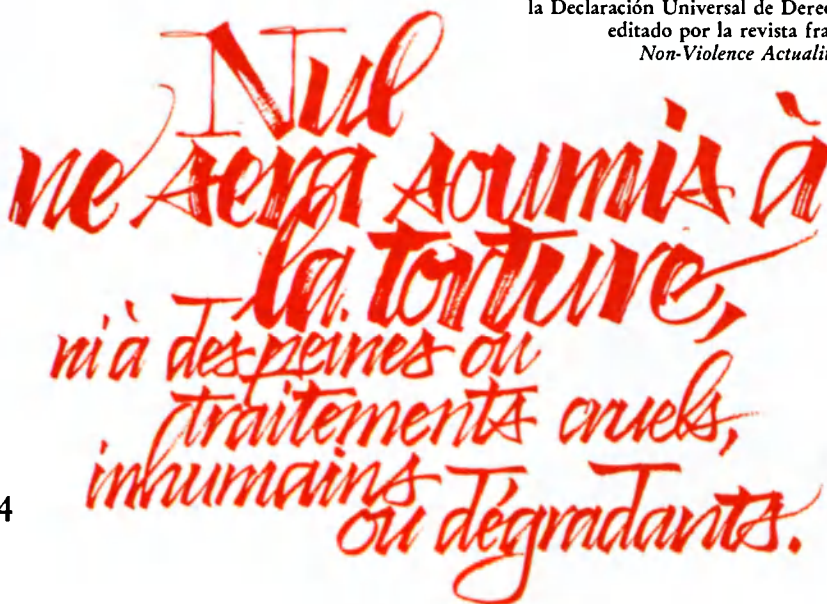 la Declaración Universal de
editado por la revista
Non-Violence
Nul
ne sera soumis à
la torture,
ni à des peines ou
traitements cruels,
inhumains
ou dégradants.
4